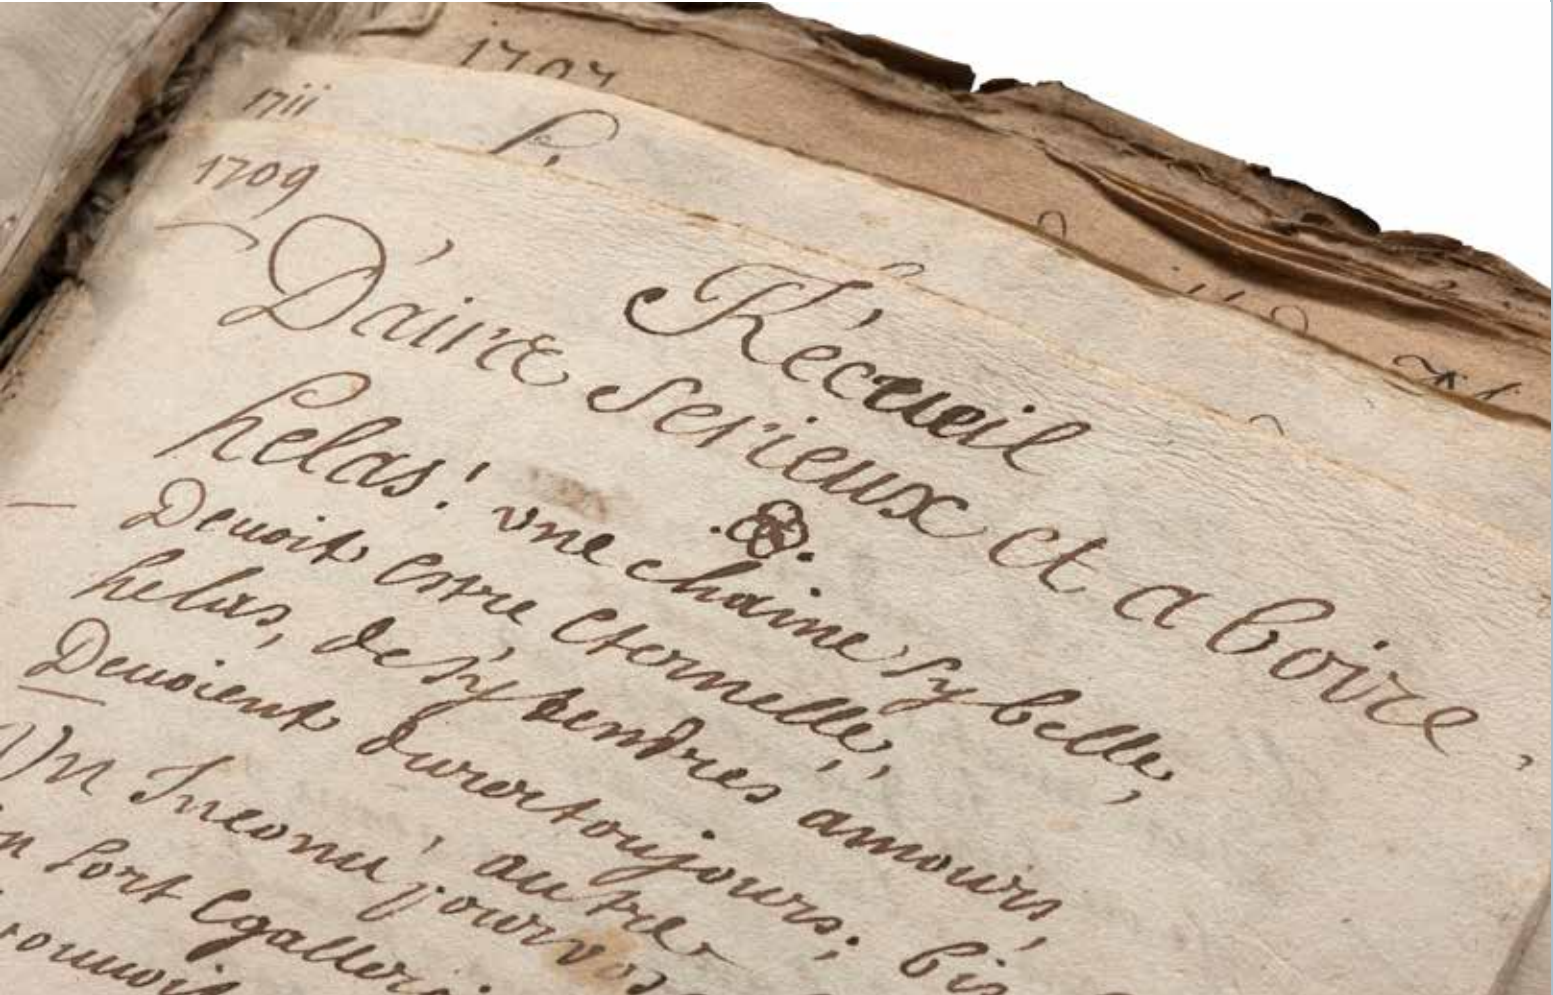 1707
1711
1709
Récueil
D'aire serieux et a boire.
helas! vne chaine sy belle,
Deuoit estre eternelle,
helas, de sy tendres amours,
Deuoient durer toujours; bis
Vn Inconu
autre
sort
jour vos